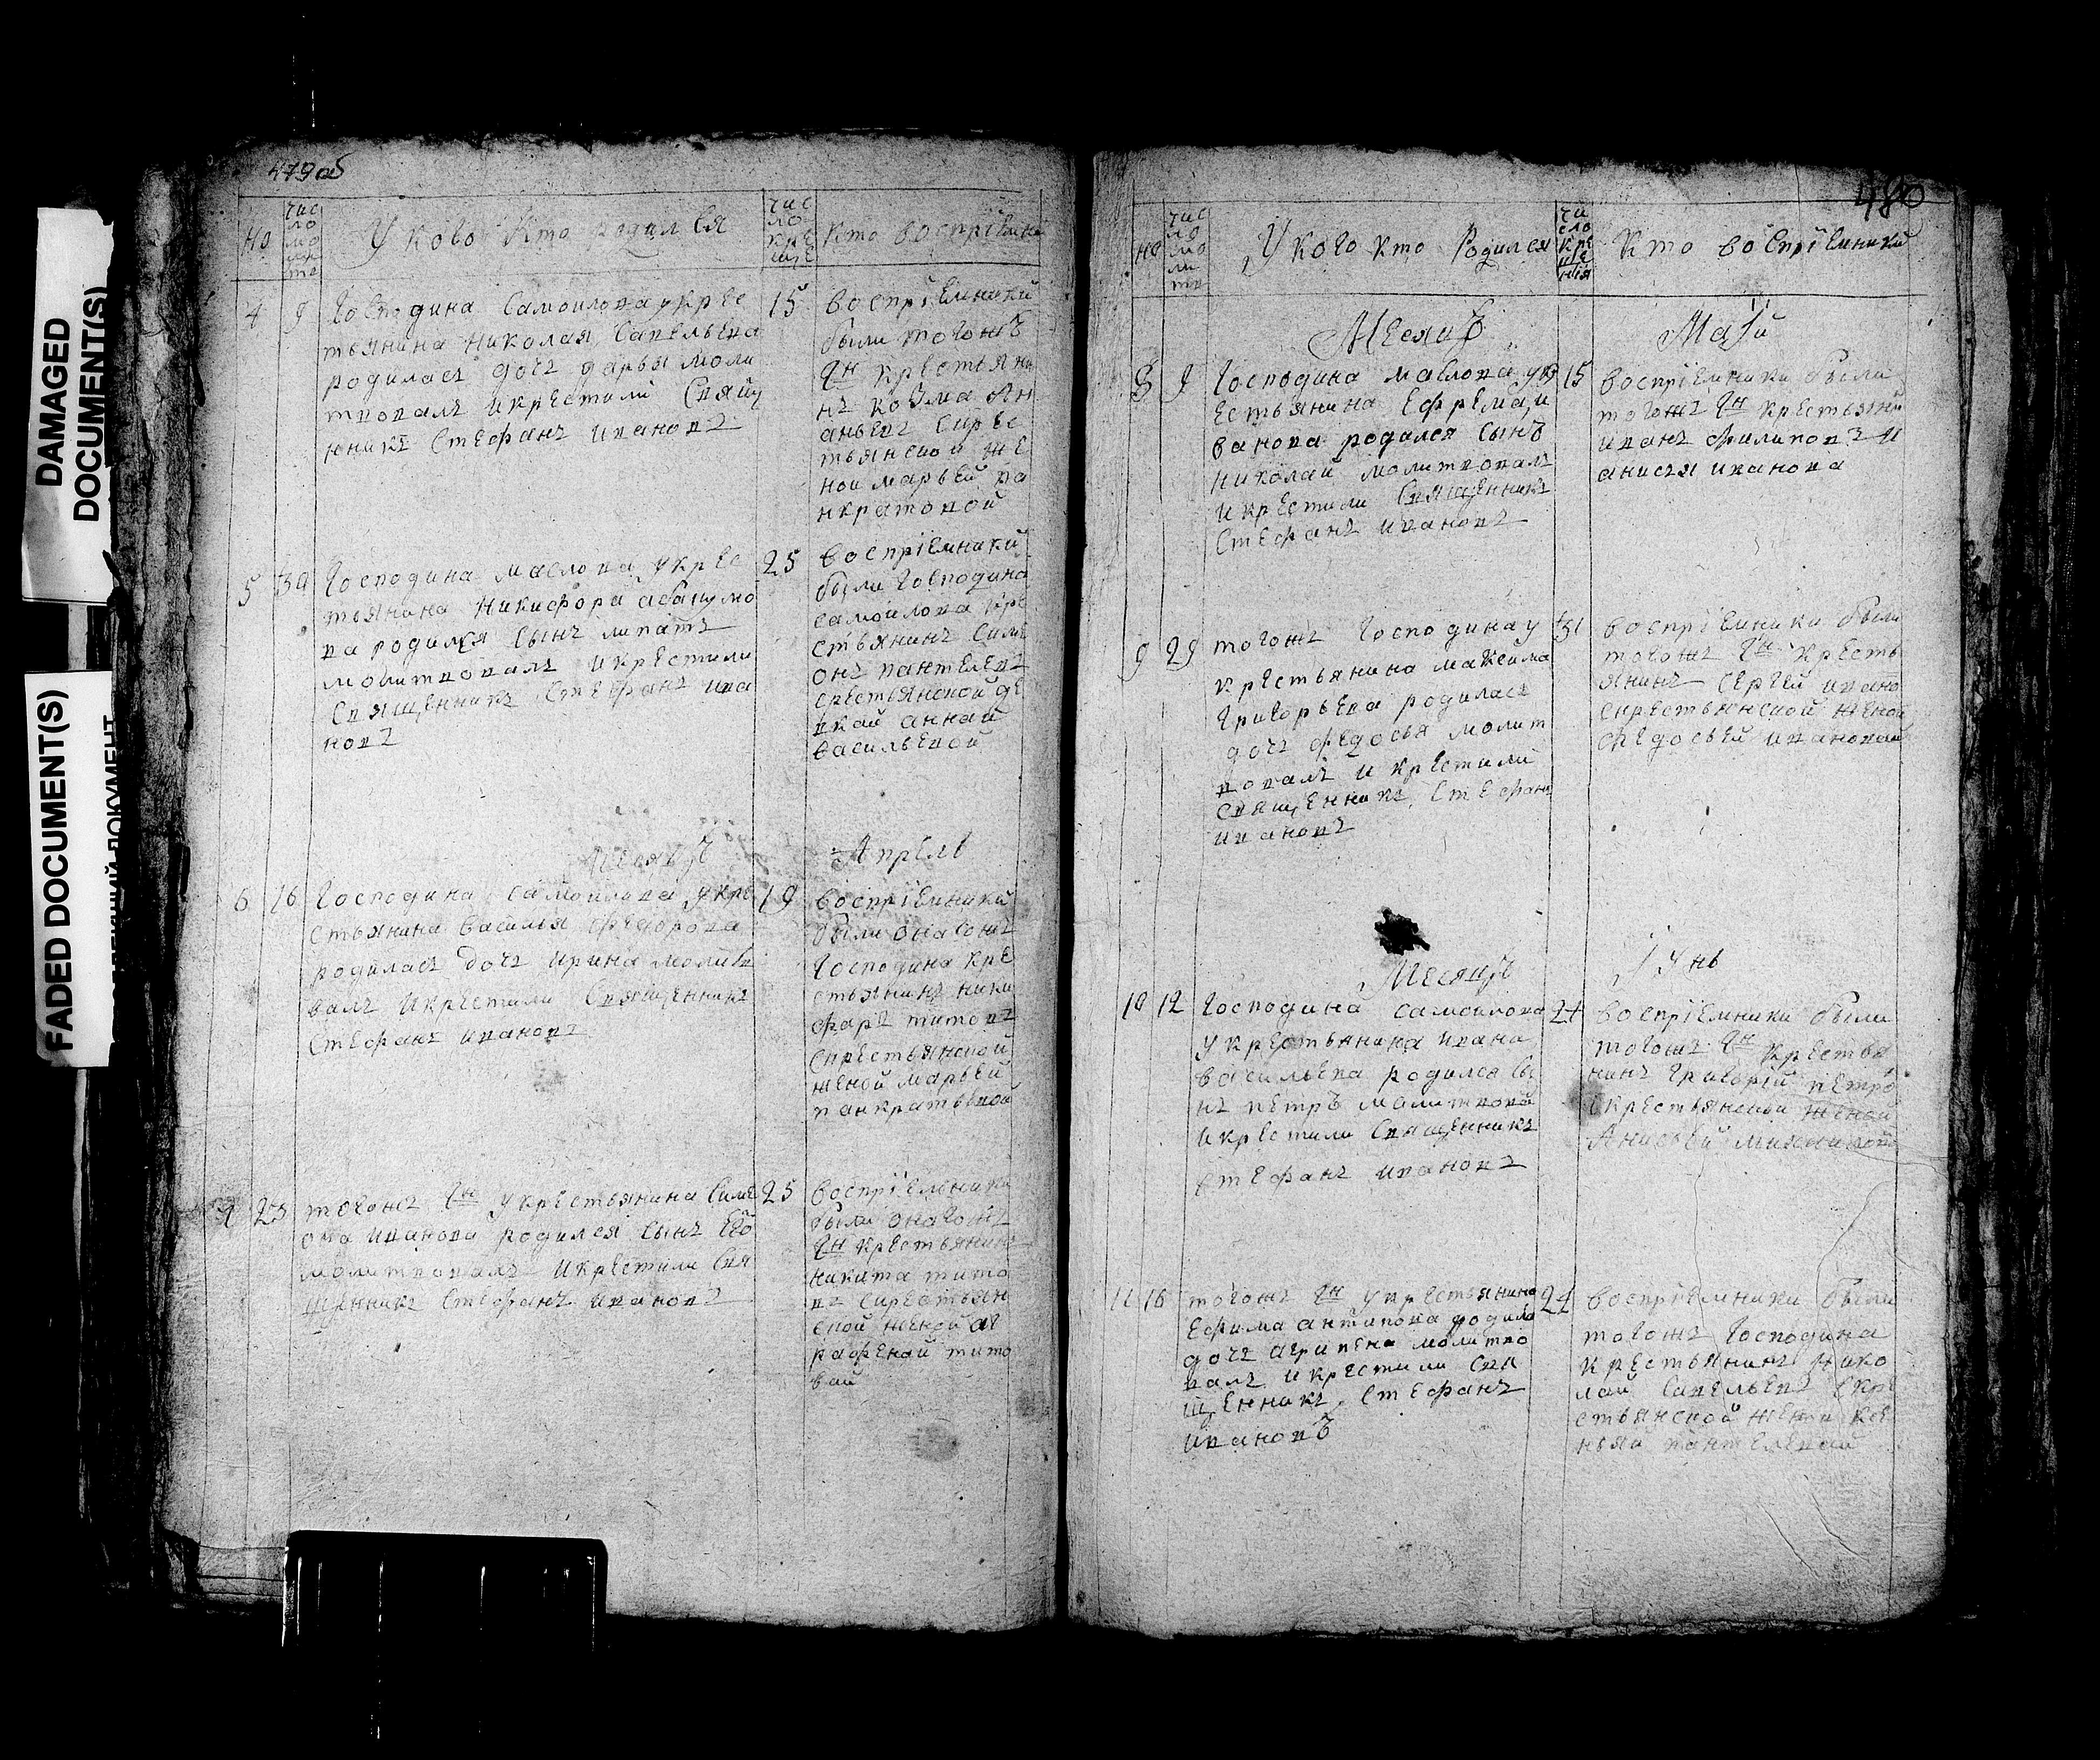 DAMAGED
DOCUMENT(S)
FADED DOCUMENT(S)
479 об
но
чис
ло
мо
ли
тв
У ково кто родился
чис
ло
кре
ще
кто восприемни
4 9 Господина Самоилова у крес
тьянина Николая Савельева
родилась дочь дарья моли
твовалъ и крестили Свящ
ｅнникъ Стефанъ Ивановъ
15 восприемники
были тогожъ
Гн крестьяни
нъ козма Ан
аньевъ
тьянской же
ной марьей па
нкратовой
5 Господина маслова у крес
тьянина Никифора
ва родился сынъ липатъ
молитвовалъ и крестили
Священникъ Стефанъ Ива
новъ
25 восприемники
были Господина
самоилова кре
стьянинъ Симе
онъ пантелевъ
скрестьянской де
вкай аннай
Васильевой
Месяцъ Апрель
6 16 Господина самоилова у кре
стьянина Василья Федорова
родилась дочь ирина молитв
валъ и крестили Священникъ
Стефанъ Ивановъ
19 восприемники
были онагожъ
Господина кре
стьянинъ ники
фаръ титовъ
скрестьянской
женой марьей
панкратьвой
23 тогожъ Гн у крестьянина Симе
она Иванова родился сынъ Его
молитвовалъ и крестили Свя
щенникъ Стефанъ Ивановъ
25 восприемники
были онагожъ
Гн крестьянинъ
никита тито
въ скрестьян
ской женой аг
рафеной тито
вай
480
но
чис
ло
мо
ли
тв
У кого кто Родился
чи
сло
кре
ще
нiя
Кто восприемники
Месяцъ Маiй
8 9 Господина маслова у кр
естьянина Ефрема и
ванова родился сынъ
николай молитвовалъ
и крестили Священникъ
Стефанъ Ивановъ
15 восприемники были
тогожъ Гн крестьянин
иванъ филиповъ и
анисья иванова
9 29 тогожъ Господина у
крестьянина максима
Григорьева родилась
дочь федосья молит
вовалъ и крестили
Священникъ Стефанъ
Ивановъ
31 восприемники были
тогожъ Гн кресть
янинъ Сергей ивано
скрестьянской женой
федосьей ивановай
Месяцъ Iунь
10 12 Господина самоилова
у крестьянина ивана
васильева родился сы
нъ петръ молитвова
и крестили Священникъ
Стефанъ Ивановъ
24 восприемники были
тогожъ Гн крестья
нинъ Григорей петро
скрестьянской женой
Анисьей
11 16 тогожъ Гн у крестьянина
Ефима антипова родила
дочь агрипена молитво
валъ и крестили Свя
щенникъ Стефанъ
Ивановъ
24 восприемники были
тогожъ Господина
крестьянинъ Нико
лай Савельевъ скре
стьянской женой ксе
ньяй пантелевай